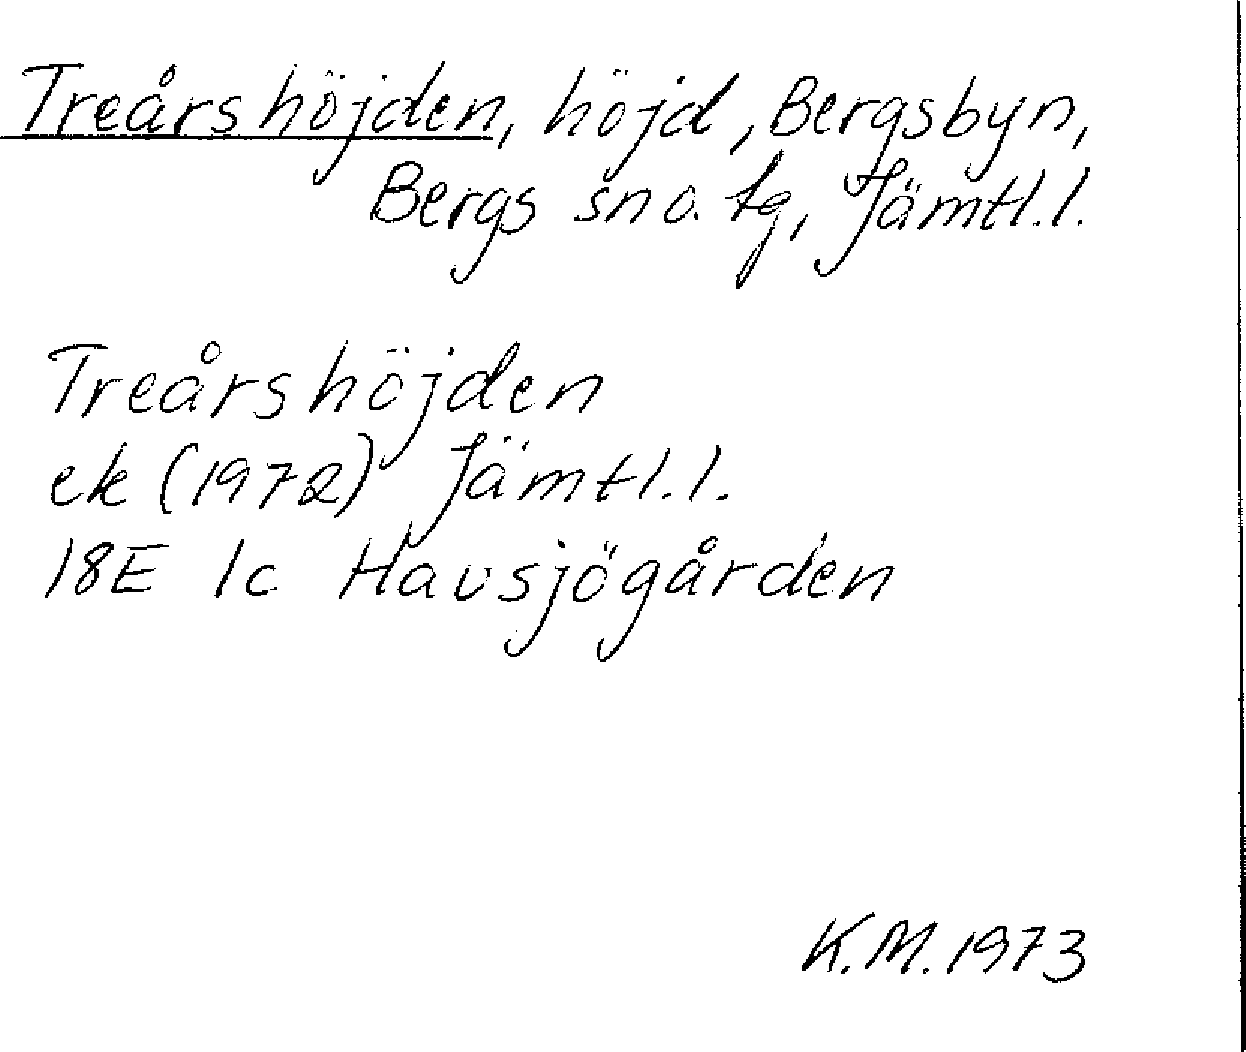 Treårshöjden, höjd, Bergsbyn,
Bergs sn o. tg, Jämtl.l.
Treårshöjden
ek (1972) Jämtl.l.
18E 1c Havsjögården
K.M. 1973